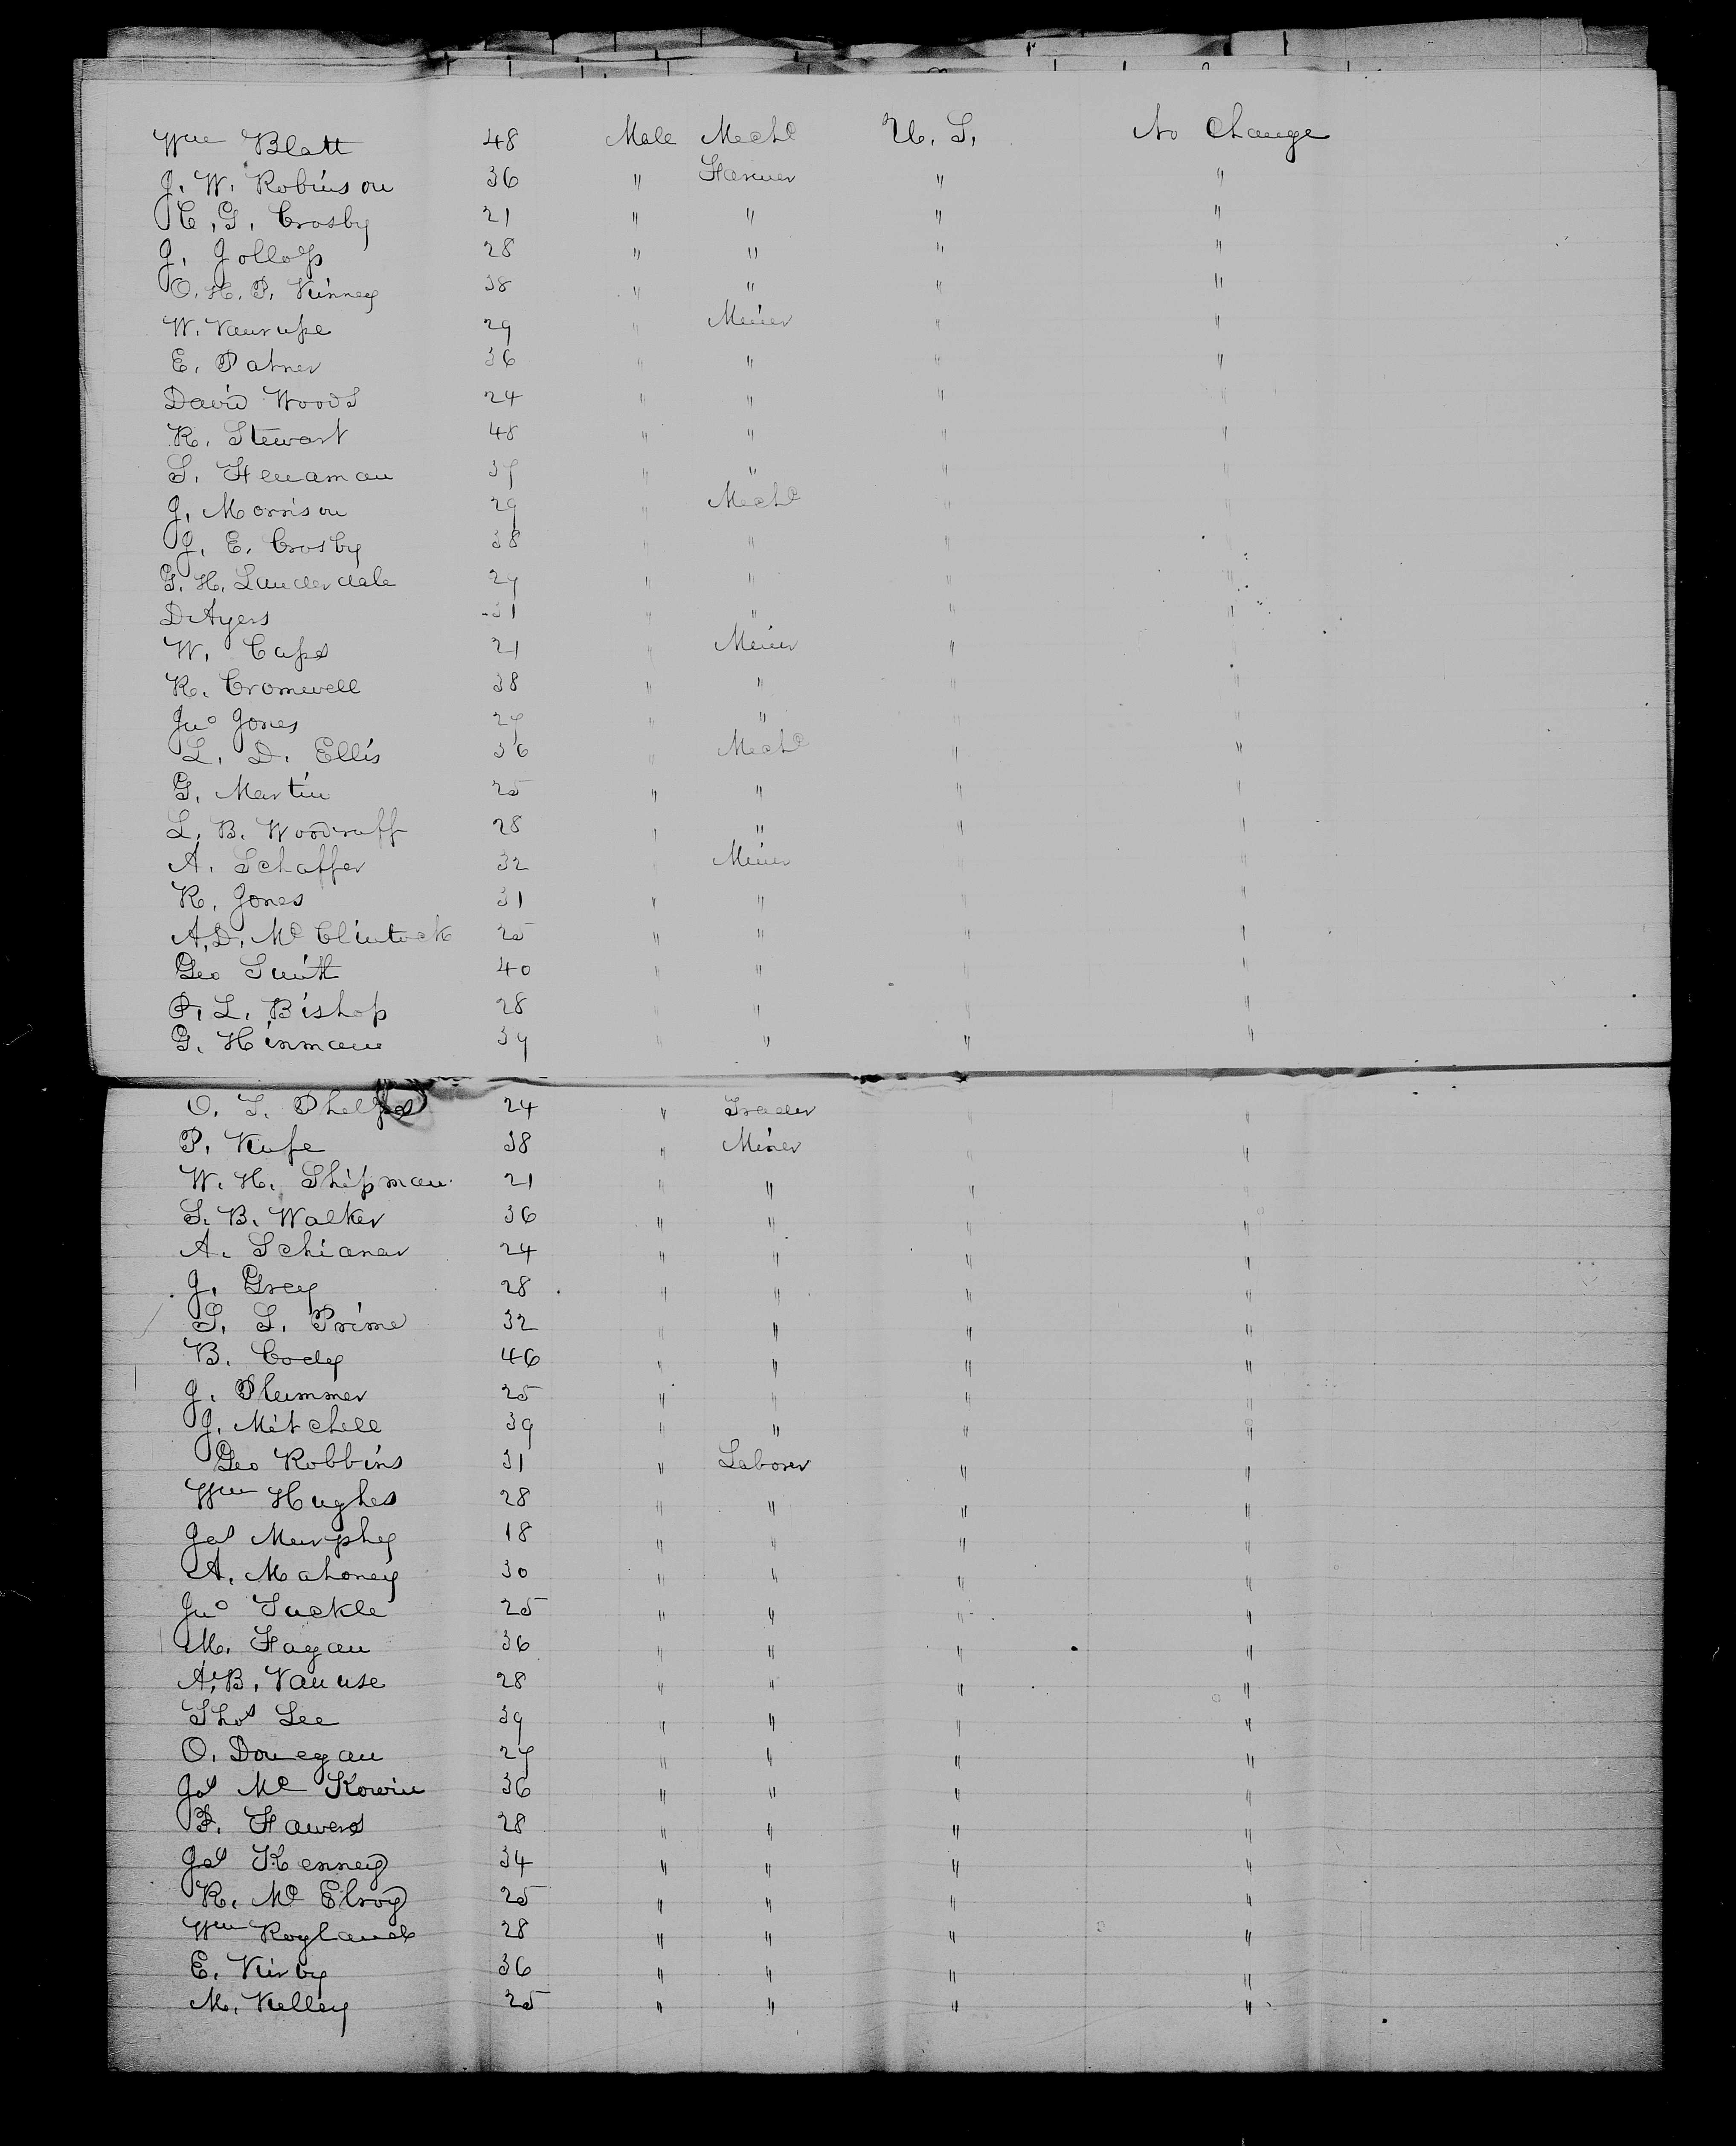 Wm Blatt 48 Male Mechc U. S. No Change
J. W. Robinson 36 " Farmer " "
R. G. Crosby 21 " " " "
J. Jollop 28 " " " "
O. H. P. Kinney 38 " " " "
W. 29 " Miner " "
E. Patner 36 " " " "
David Woods 24 " " " "
R. Stewart 48 " " " "
S. 37 " " " "
J. Morrison 29 " Mechc " "
J. E. Crosby 38 " " " "
G. H. Lauderdale 27 " " " "
D Ayers 31 " " " "
W. Caps 21 " Miner " "
R. Cromwell 38 " " " "
Jno Jones 27 " " " "
L. D. Ellis 36 " Mechc " "
G. Martin 25 " " " "
L. B. Woodruff 28 " " " "
A. Schaffer 32 " Miner " "
R. Jones 31 " " " "
A. D. McClintock 25 " " " "
Geo Smith 40 " " " "
P. L. Bishop 28 " " " "
G. Hinman 37 " " " "
O. S. Phelps 24 " Trader " "
P. Kupe 38 " Miner " "
W. H. Shipman 21 " " " "
S. B. Walker 36 " " " "
A. Schianar 24 " " " "
J. Grey 28 " " " "
S. S. Prime 32 " " " "
B. Cody 46 " " " "
J. Plummer 25 " " " "
J. Mitchell 39 " " " "
Geo Robbins 31 " Laborer " "
Wm Hughes 28 " " " "
Jas Murphy 18 " " " "
A. Mahoney 30 " " " "
Jno Tuckle 25 " " " "
M. Fagan 36 " " " "
A. B. Vanuse 28 " " " "
Thos Lee 39 " " " "
O. Donegan 27 " " " "
Jas Mc Kowin 36 " " " "
B. Fawers 28 " " " "
Jas Kenney 34 " " " "
R. McElroy 25 " " " "
Wm Royland 28 " " " "
E. Kirby 36 " " " "
M. Kelley 25 " " " "